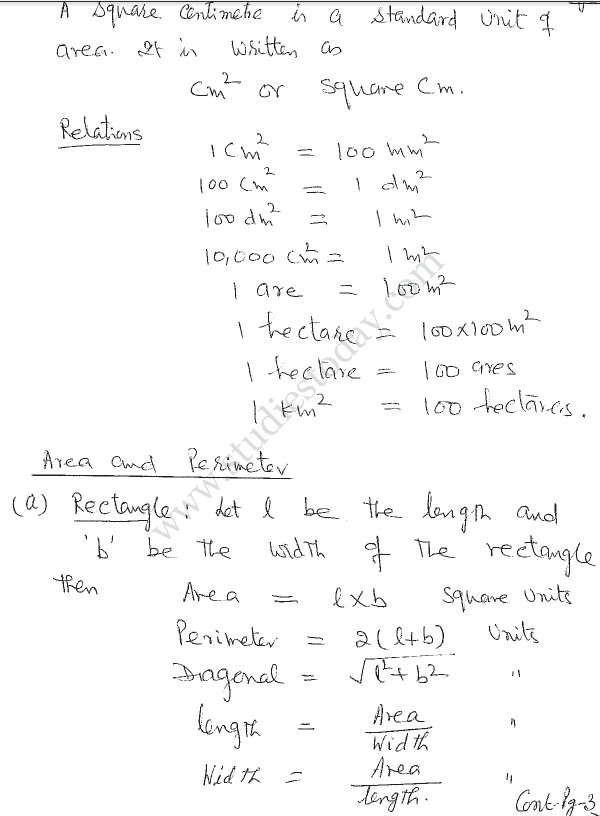 A Square Centimetre is a standard unit of
area. It is written as
cm² or square cm.
Relations
1 cm² = 100 mm²
100 cm² = 1 dm²
100 dm² = 1 m²
10,000 cm² = 1 m²
1 are = 100 m²
1 hectare = 100×100 m²
1 hectare = 100 ares
1 km² = 100 hectares.
www.studiestoday.com
Area and Perimeter
(a) Rectangle: Let l be the length and
'b' be the width of the rectangle
then Area = l×b square units
Perimeter = 2(l+b) units
Diagonal = √l²+b² "
length = Area/Width "
Width = Area/length. "
Cont-Pg-3